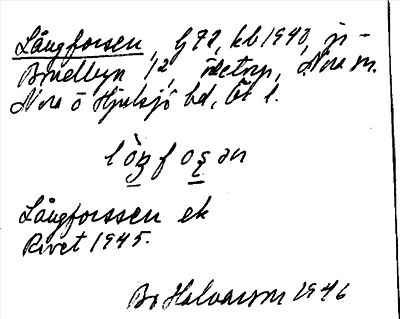 Långforsen, G72, kb 1940, i
Bredbyn 12, ödetorp, Nora sn.
Nora o Hjulsjö bd, Ör l.
lòŋfosən
Långforssen ek
Rivet 1945.
Bo Halvarson 1946